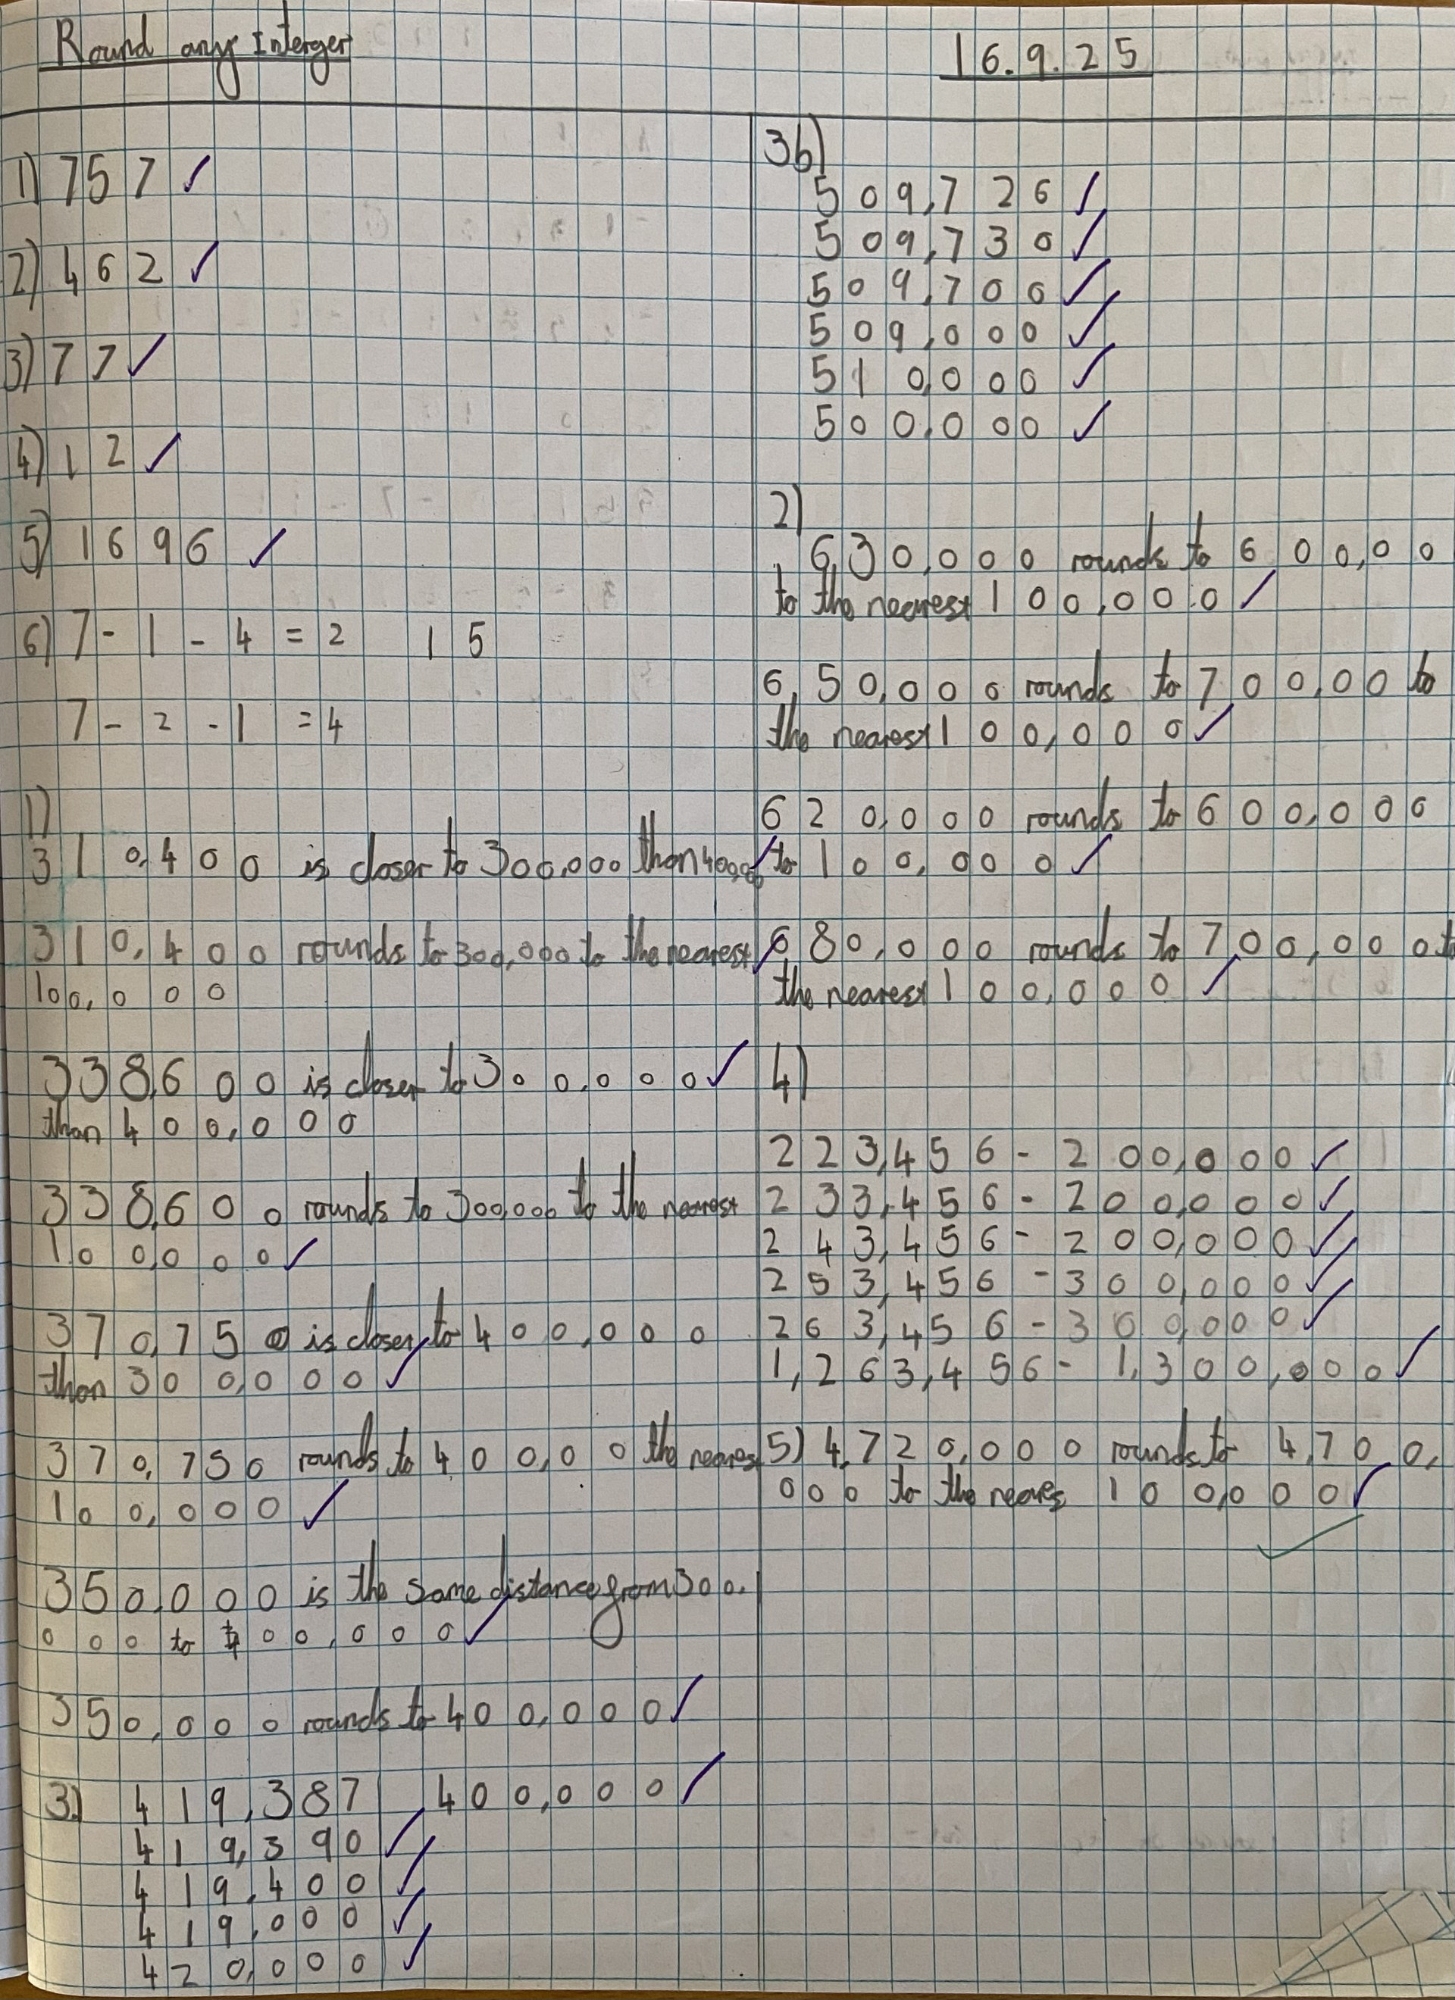 Round any Interger
16.9.25
1) 757 ✓
2) 462 ✓
3) 77 ✓
4) 12 ✓
5) 1696 ✓
6) 7 - 1 - 4 = 2 15
7 - 2 - 1 = 4
1)
310,400 is closer to 300,000 than 400,00 ✓
310,400 rounds to 300,000 to the nearest ✓
100,000
338,600 is closer to 300,000 ✓
than 400,000
338,600 rounds to 300,000 to the nearest
100,000 ✓
370,750 is closer to 400,000
than 300,000 ✓
370,750 rounds to 400,00 the neares
100,000 ✓
350,000 is the same distance from 300.
000 to 400,000 ✓
350,000 rounds to 400,000 ✓
3) 419,387 400,000 ✓
419,390 ✓
419,400 ✓
419,000 ✓
420,000 ✓
3b)
509,726 ✓
509,730 ✓
509,700 ✓
509,000 ✓
510,000 ✓
500,000 ✓
2)
630,000 rounds to 600,00
to the nearest 100,000 ✓
6,50,000 rounds to 700,00 to
the nearest 100,000 ✓
620,000 rounds to 600,000
to 100,000 ✓
680,000 rounds to 7,00,000 to
the nearest 100,000 ✓
4)
223,456 - 200,000 ✓
233,456 - 200,000 ✓
243,456 - 200,000 ✓
253,456 - 300,000 ✓
263,456 - 300,000 ✓
1,263,456 - 1,300,000 ✓
5) 4,720,000 rounds to 4,700,
000 to the neares 100,000 ✓
✓